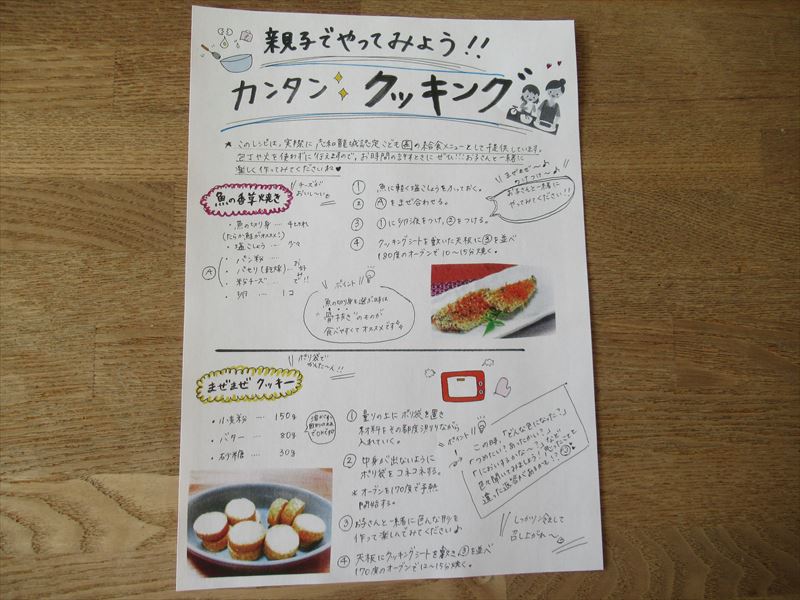 親子でやってみよう!!
カンタン クッキング
★このレシピは、実際に志和龍城認定こども園の給食メニューとして提供しています。
包丁や火を使わずに行えますので、お時間の許すときに ぜひ!!お子さんと一緒に
楽しく作ってみてくださいね♥
チーズが
おいし〜い
魚の香草焼き
・魚の切り身 … 4切れ
(たらか鮭がオススメ!)
・塩こしょう … 少々
Ⓐ
・パン粉 …
・パセリ(乾燥)…
・粉チーズ …
お好みで!!
・卵 … 1コ
① 魚に軽く塩こしょうをふっておく。
② Ⓐをまぜ合わせる。
③ ①に卵液をつけ、②をつける。
④ クッキングシートを敷いた天板に③を並べ
180度のオーブンで10〜15分焼く。
まぜまぜ〜♪
つけつけ〜♪
お子さんと一緒に
やってみてください!!
ポイント
魚の切り身を選ぶ時は
"骨抜き"のものが
食べやすくてオススメです
ポリ袋で
かんた〜ん!!
まぜまぜ クッキー
・小麦粉 … 150g
・バター … 80g
・砂糖 … 30g
① 量りの上にポリ袋を置き
材料をその都度測りながら
入れていく。
② 中身が出ないように
ポリ袋をコネコネする。
*オーブンを170度で予熱
開始する。
③ お子さんと一緒に色んな形を
作って楽しんでみてください♪
④ 天板にクッキングシートを敷き③を並べ
170度のオーブンで12〜15分焼く。
ポイント
この時、「どんな色になった?」
「つめたい?あったかい?」
「においするかな〜?」など
色々聞いてみましょう!思ったことと
違った返答があるかも!?
しっかリン冷まして
召し上がれ〜